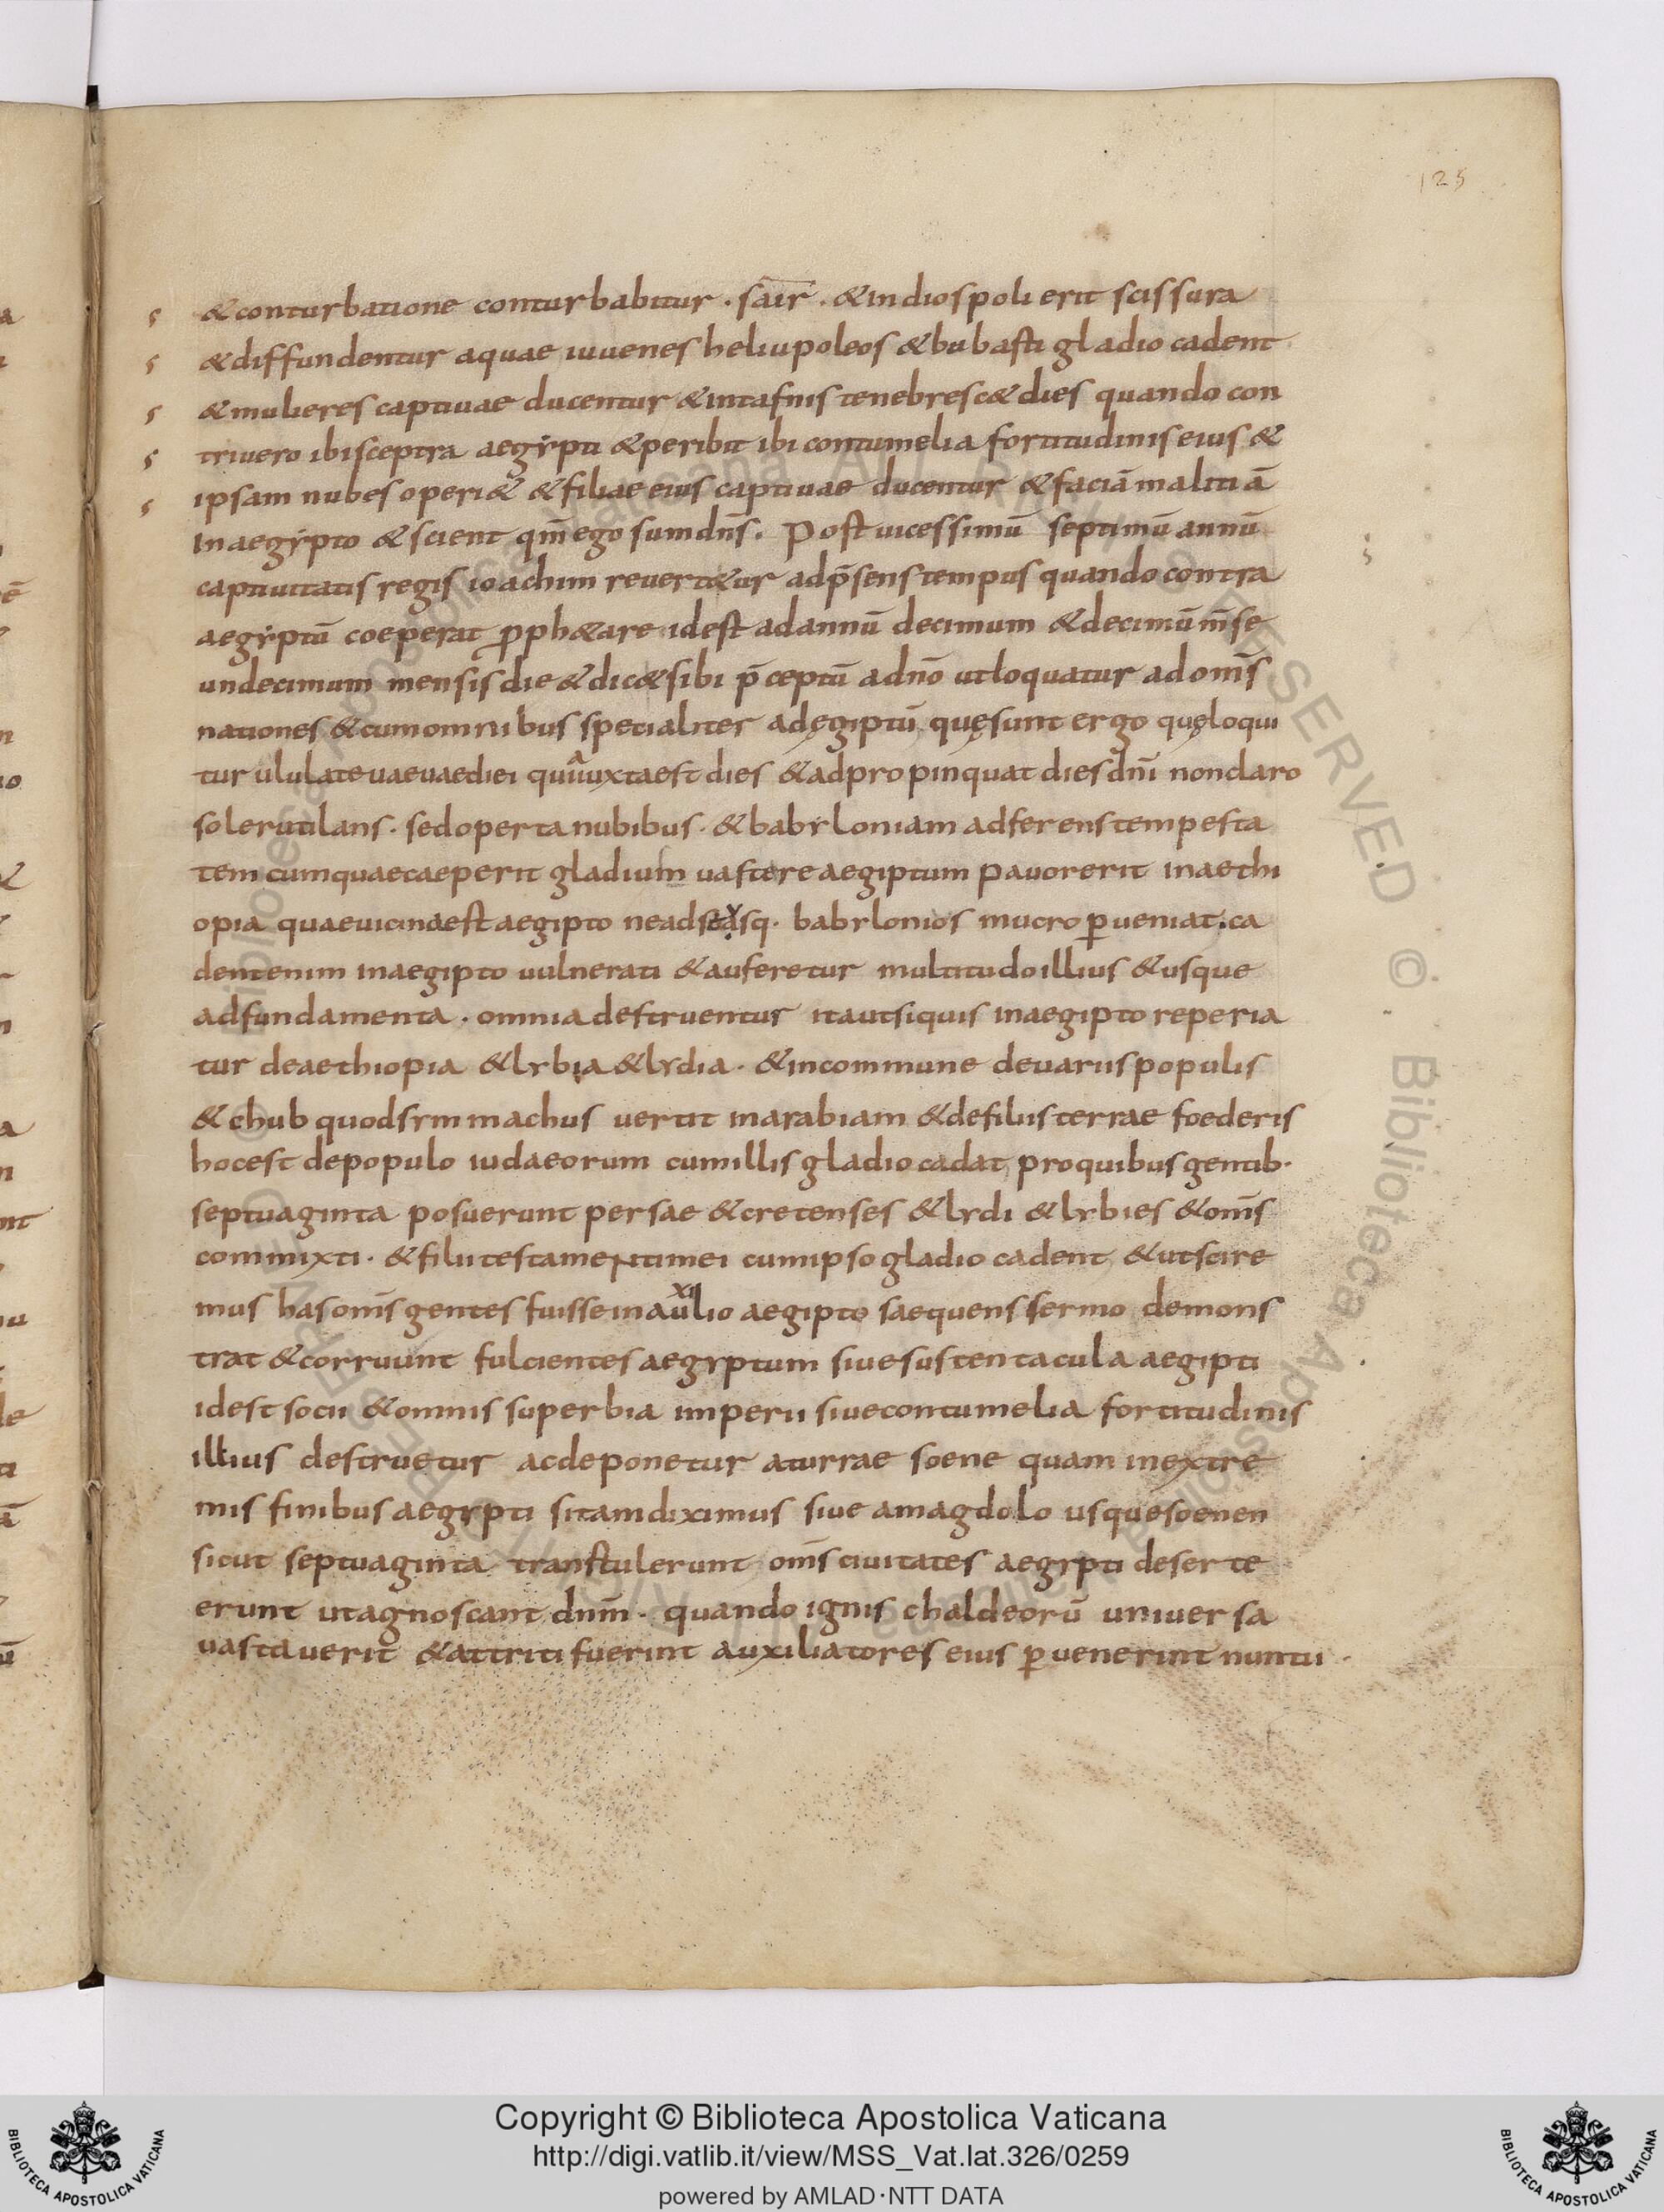 125
& conturbatione conturbabitur · saïr · & in diospoli erit scissura
& diffundentur aquae iuuenes heliupoleos & bubasti gladio cadent
& mulieres captiuae ducentur & in tafnis tenebresc& dies quando con
triuero ibi sceptra aegypti & peribit ibi contumelia fortitudinis eius &
ipsam nubes operi& & filiae eius captiuae ducentur & faciā malitiā
In aegypto & scient qm̄ ego sum dn̄s. Post uicessimū septimū annū
captiuitatis regis ioachim reuert&ur ad p̄sens tempus quando contra
aegyptū coeperat proph&are idest ad annū decimum & decimū m̄se
undecimum mensis die & dic& sibi p̄ceptū a dn̄o ut loquatur ad om̄s
nationes & cum omnibus specialiter ad ęgiptū quę sunt ergo quę loqui
tur ululate uae uae diei quia iuxta est dies & adpropinquat dies dn̄i non claro
sole rutilans · sed operta nubibus · & babyloniam adferens tempesta
tem cumquae caeperit gladium uastere aegiptum pauor erit in aethi
opia quae uicina est aegipto ne ad scytasq · babylonios mucro p̱ueniat. ca
dent enim in aegipto uulnerati & auferetur multitudo illius & usque
ad fundamenta · omnia destruentur ita ut siquis in aegipto reperia
tur de aethiopia & lybia & lydia · & in commune de uariis populis
& chub quod symmachus uertit in arabiam & de filiis terrae foederis
hoc est de populo iudaeorum cum illis gladio cadat pro quibus gentib·
septuaginta posuerunt persae & cretenses & lydi & lybies & om̄s
commixti · & filii testamenti mei cum ipso gladio cadent & ut scire
mus has om̄s gentes fuisse in auxilio aegipto saequens sermo demons
trat & corruunt fulcientes aegyptum siue sustentacula aegipti
idest socii & omnis superbia imperii siue contumelia fortitudinis
illius destruetur ac deponetur a turrae soene quam in extre
mis finibus aegypti sitam diximus siue a magdolo usque soenen
sicut septuaginta transtulerunt om̄s ciuitates aegypti deserte
erunt ut agnoscant dn̄m · quando ignis chaldeorū uniuersa
uastauerit & attriti fuerint auxiliatores eius p̱uenerint nuntii ·
Copyright © Biblioteca Apostolica Vaticana
http://digi.vatlib.it/view/MSS_Vat.lat.326/0259
powered by AMLAD·NTT DATA
BIBLIOTECA APOSTOLICA VATICANA
BIBLIOTECA APOSTOLICA VATICANA